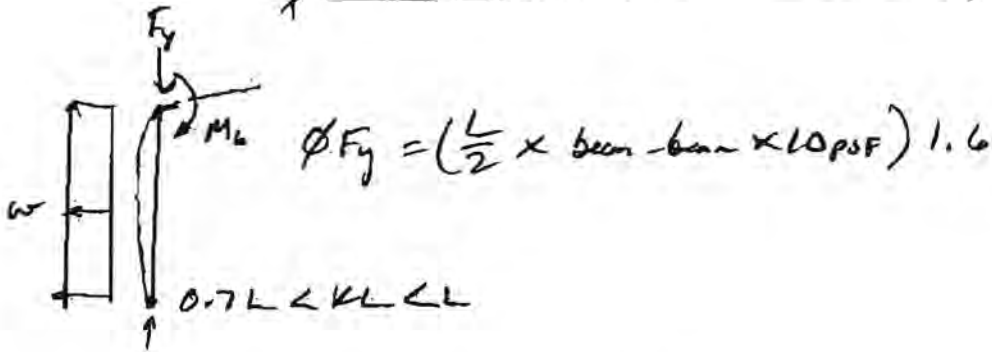 Fy
Mb
ϕFy = (L/2 × beam-beam × 10 PSF) 1.6
w
0.7L < KL < L